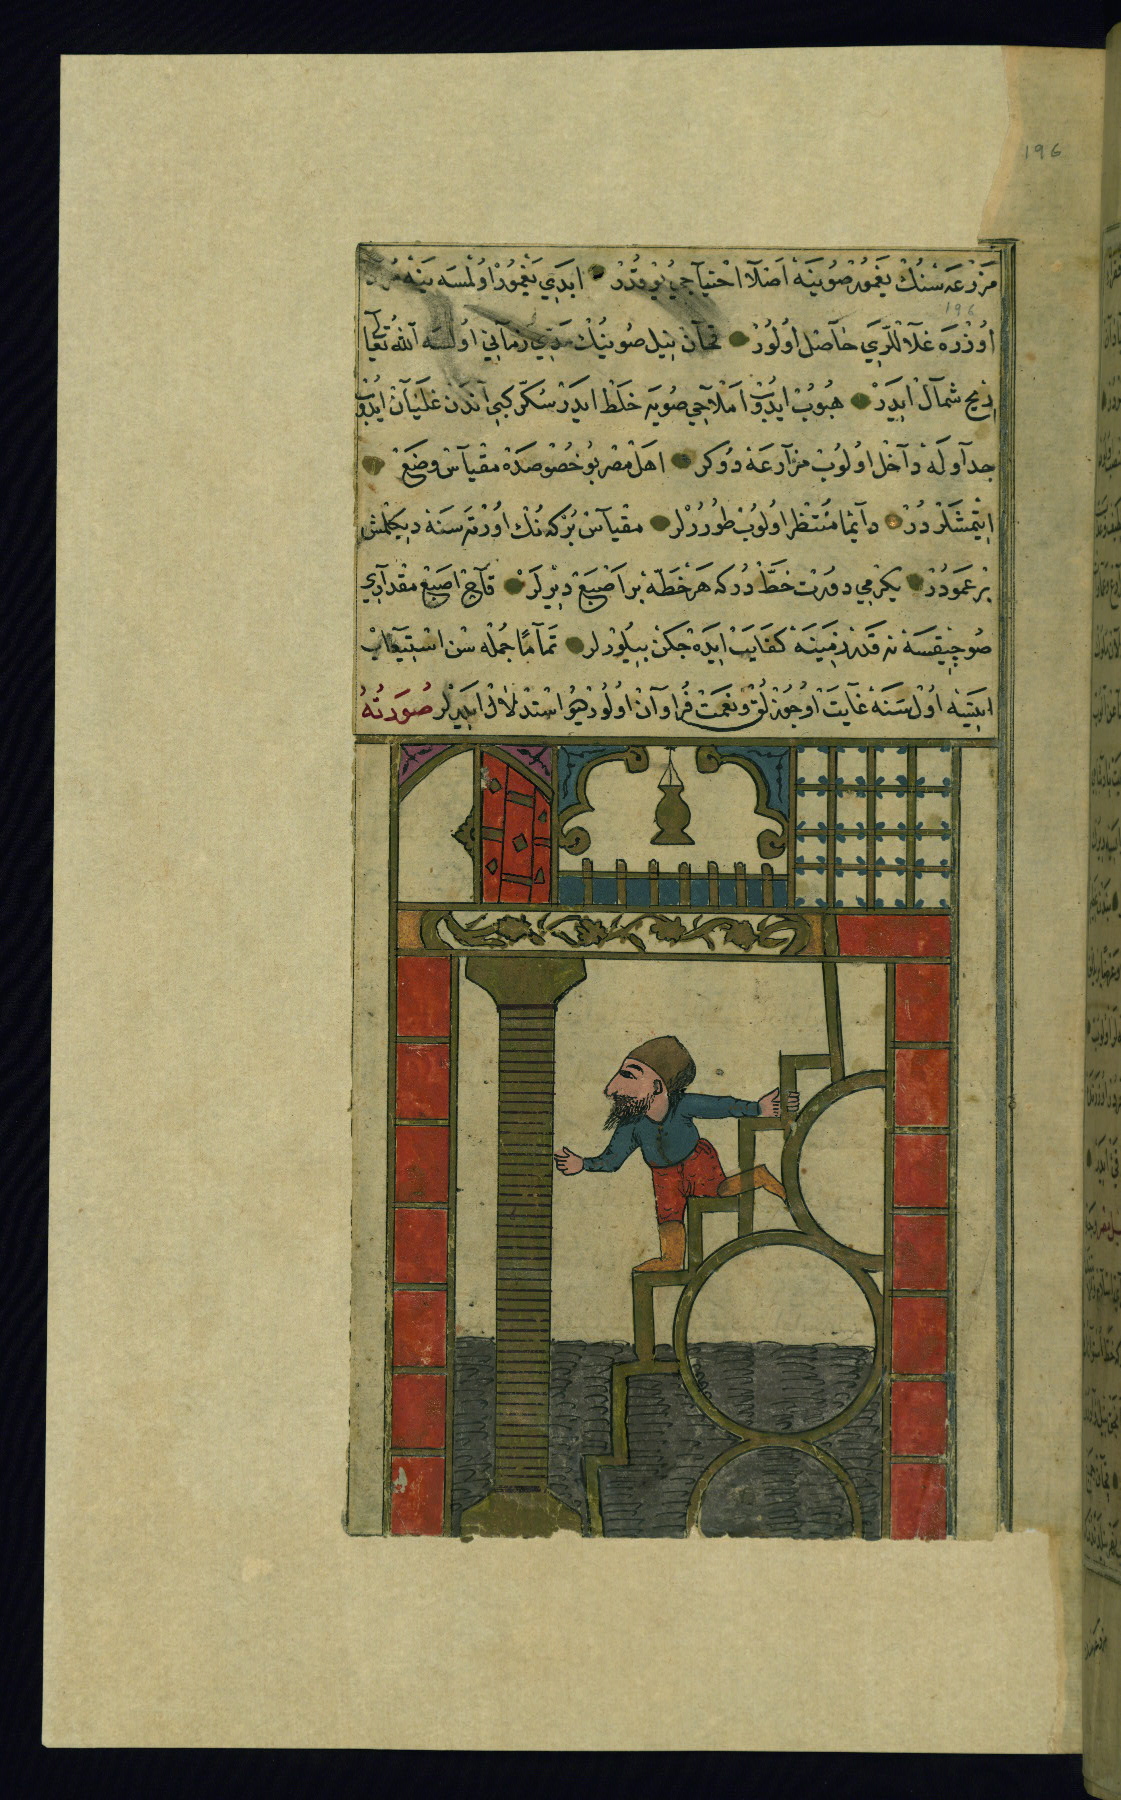 196
مَزْرَعَه سْنُكْ يَغْمُورْ صُويِنَهْ اَصْلَا احْتِيَآجِي يُوقْدُرْ ابَدِي يَغْمُورْ اُولْمَسَه يَنَه
196
اُوزْرَه غَلَّآ لْلَرِي حَآصِل اُولُورْ قَچَآنْ نِيل صُويِنُكْ مَدِّي زَمَانِي اُولْسَه آللهُ تَعَالَى
رِيحِ شمآلْ ايدَرْ هُبُوبْ ايدُوبْ امْلَآجِي صُويَه خَلْط ايدَرْ سُكَّرْ كبِي آندَنْ غَلَيَآنْ ايدُوبْ
جدآوِلَهْ دآخِل اولُوبْ مزآرعَهْ دُوكر اهَلْ مِصْر بُو خُصُوصدَهْ مقْيَآسْ وضَعْ
ايتْمِشْلَرْ دُرْ دآيمَا مُنْتَظِر اولُوبْ طُورُرْلَر مقْيَآسْ بُرْكه نُكْ اُورْتَه سَنَهْ ديكلْمِش
بْر عَمَودُرْ يكرْمِي دورْت خَطّ دُركه هَرْ خَطّه بْر اصْبَعْ ديْرلَرْ قآچْ اصْبَعْ مقْدآرِي
صُو چيقسَهْ نه قَدَر زمِينَهْ كفَايَتْ ايدَهْ جكِنْ بيلُورلر تمآمًا جُمْله سْن اسْتِيعَآبْ
ايتسَه اُولْ سَنَهْ غآيَتْ اُوجُوزلُقْ ونِعْمَتْ فُرآوآنْ اولُورْ ديُو اسْتدْلَالْ ايدرْلر صُورَتُهُ